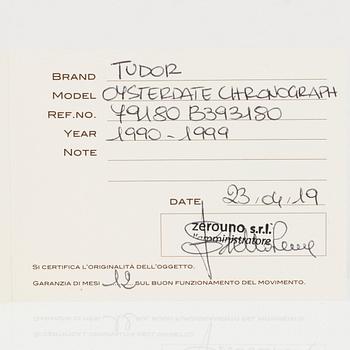 BRAND TUDOR
MODEL OYSTERDATE CHRONOGRAPH
REF.NO. 79180 B393180
YEAR 1990-1999
NOTE
DATE 23/04/19
zerouno s.r.l.
l'amministratore
SI CERTIFICA L'ORIGINALITÀ DELL'OGGETTO.
GARANZIA DI MESI 12 SUL BUON FUNZIONAMENTO DEL MOVIMENTO.